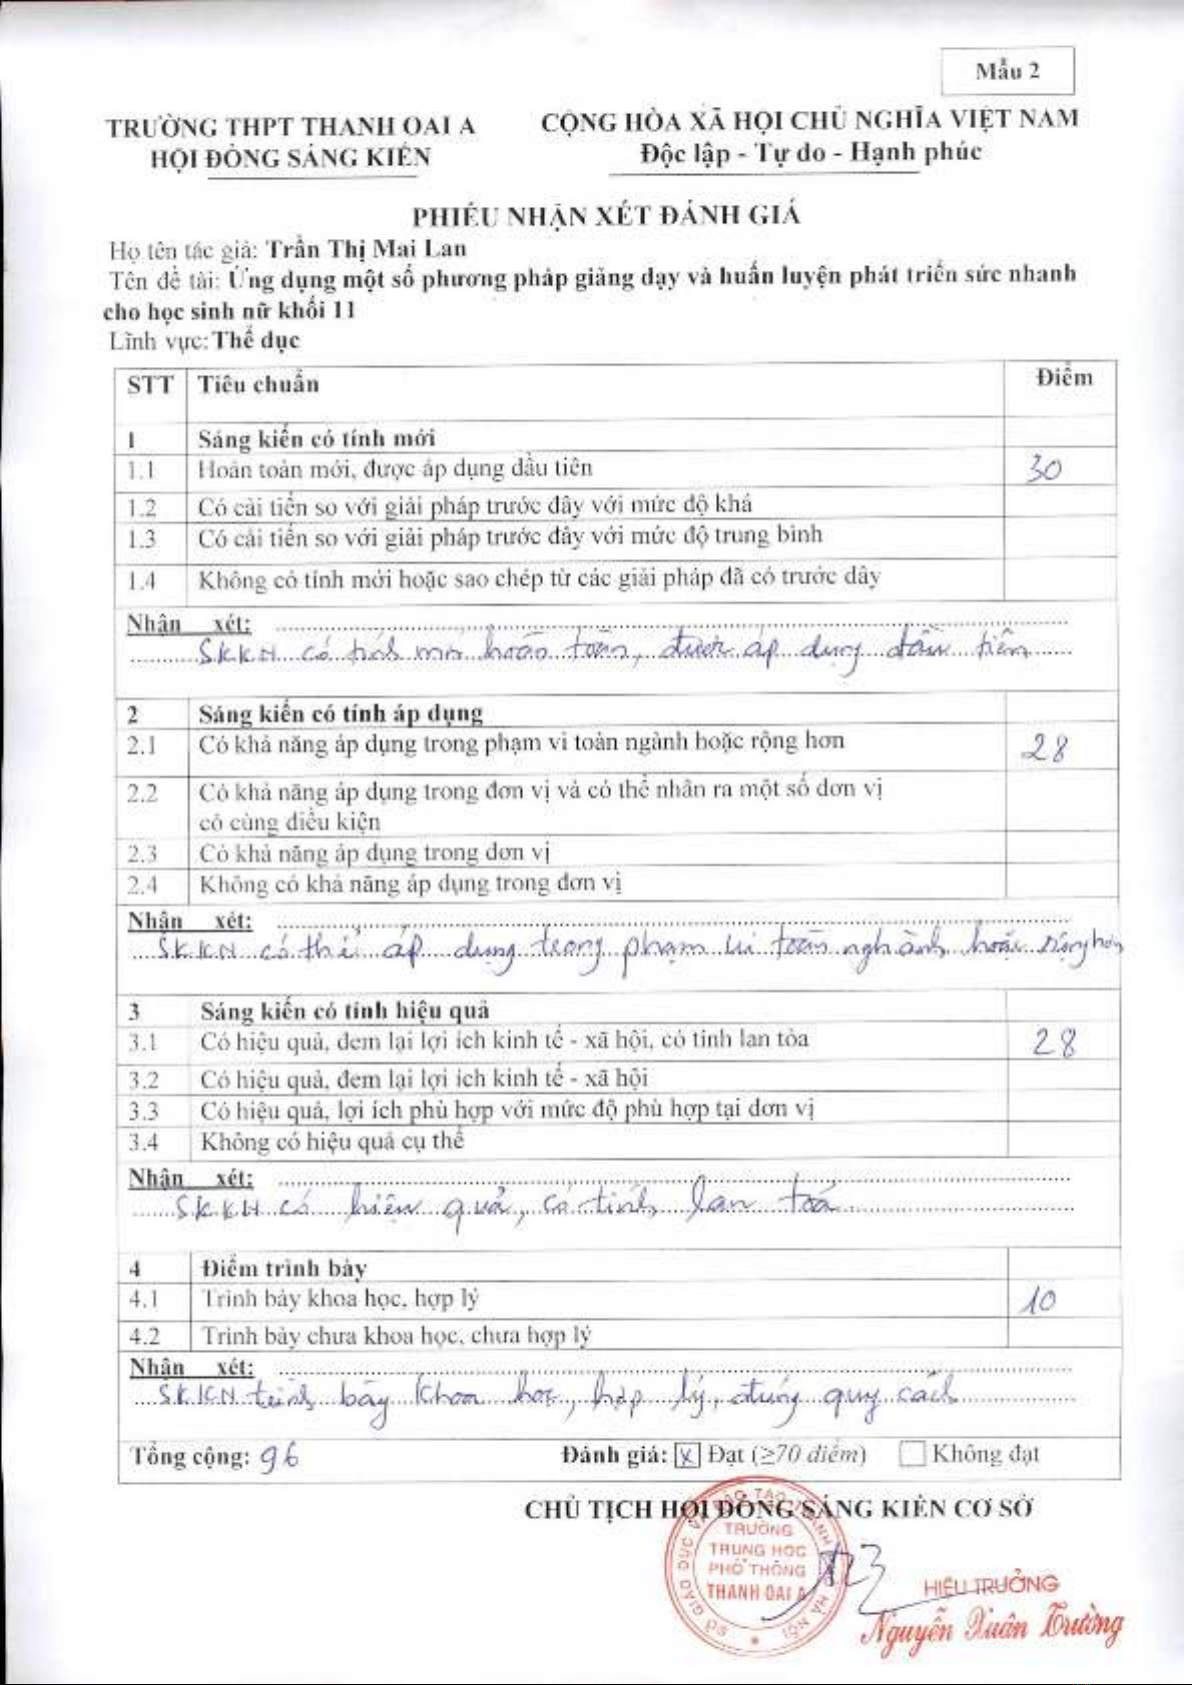 Mẫu 2
TRƯỜNG THPT THANH OAI A
HỘI ĐỒNG SÁNG KIẾN
CỘNG HÒA XÃ HỘI CHỦ NGHĨA VIỆT NAM
Độc lập - Tự do - Hạnh phúc
PHIẾU NHẬN XÉT ĐÁNH GIÁ
Họ tên tác giả: Trần Thị Mai Lan
Tên đề tài: Ứng dụng một số phương pháp giảng dạy và huấn luyện phát triển sức nhanh
cho học sinh nữ khối 11
Lĩnh vực: Thể dục
STT Tiêu chuẩn Điểm
1 Sáng kiến có tính mới
1.1 Hoàn toàn mới, được áp dụng đầu tiên 30
1.2 Có cải tiến so với giải pháp trước đây với mức độ khá
1.3 Có cải tiến so với giải pháp trước đây với mức độ trung bình
1.4 Không có tính mới hoặc sao chép từ các giải pháp đã có trước đây
Nhận xét:
SKKN có tính mới hoàn toàn, được áp dụng đầu tiên
2 Sáng kiến có tính áp dụng
2.1 Có khả năng áp dụng trong phạm vi toàn ngành hoặc rộng hơn 28
2.2 Có khả năng áp dụng trong đơn vị và có thể nhân ra một số đơn vị
có cùng điều kiện
2.3 Có khả năng áp dụng trong đơn vị
2.4 Không có khả năng áp dụng trong đơn vị
Nhận xét:
SKKN có thể áp dụng trong phạm vi toàn nghành hoặc rộng hơn
3 Sáng kiến có tính hiệu quả
3.1 Có hiệu quả, đem lại lợi ích kinh tế - xã hội, có tính lan tỏa 28
3.2 Có hiệu quả, đem lại lợi ích kinh tế - xã hội
3.3 Có hiệu quả, lợi ích phù hợp với mức độ phù hợp tại đơn vị
3.4 Không có hiệu quả cụ thể
Nhận xét:
SKKN có hiệu quả, có tính lan toả
4 Điểm trình bày
4.1 Trình bày khoa học, hợp lý 10
4.2 Trình bày chưa khoa học, chưa hợp lý
Nhận xét:
SKKN trình bày khoa học, hợp lý, đúng quy cách
Tổng cộng: 96 Đánh giá: x Đạt (≥70 điểm) Không đạt
CHỦ TỊCH HỘI ĐỒNG SÁNG KIẾN CƠ SỞ
SỞ GIÁO DỤC VÀ ĐÀO TẠO THÀNH HÀ NỘI
TRƯỜNG
TRUNG HỌC
PHỔ THÔNG
THANH OAI A
HIỆU TRƯỞNG
Nguyễn Xuân Trường